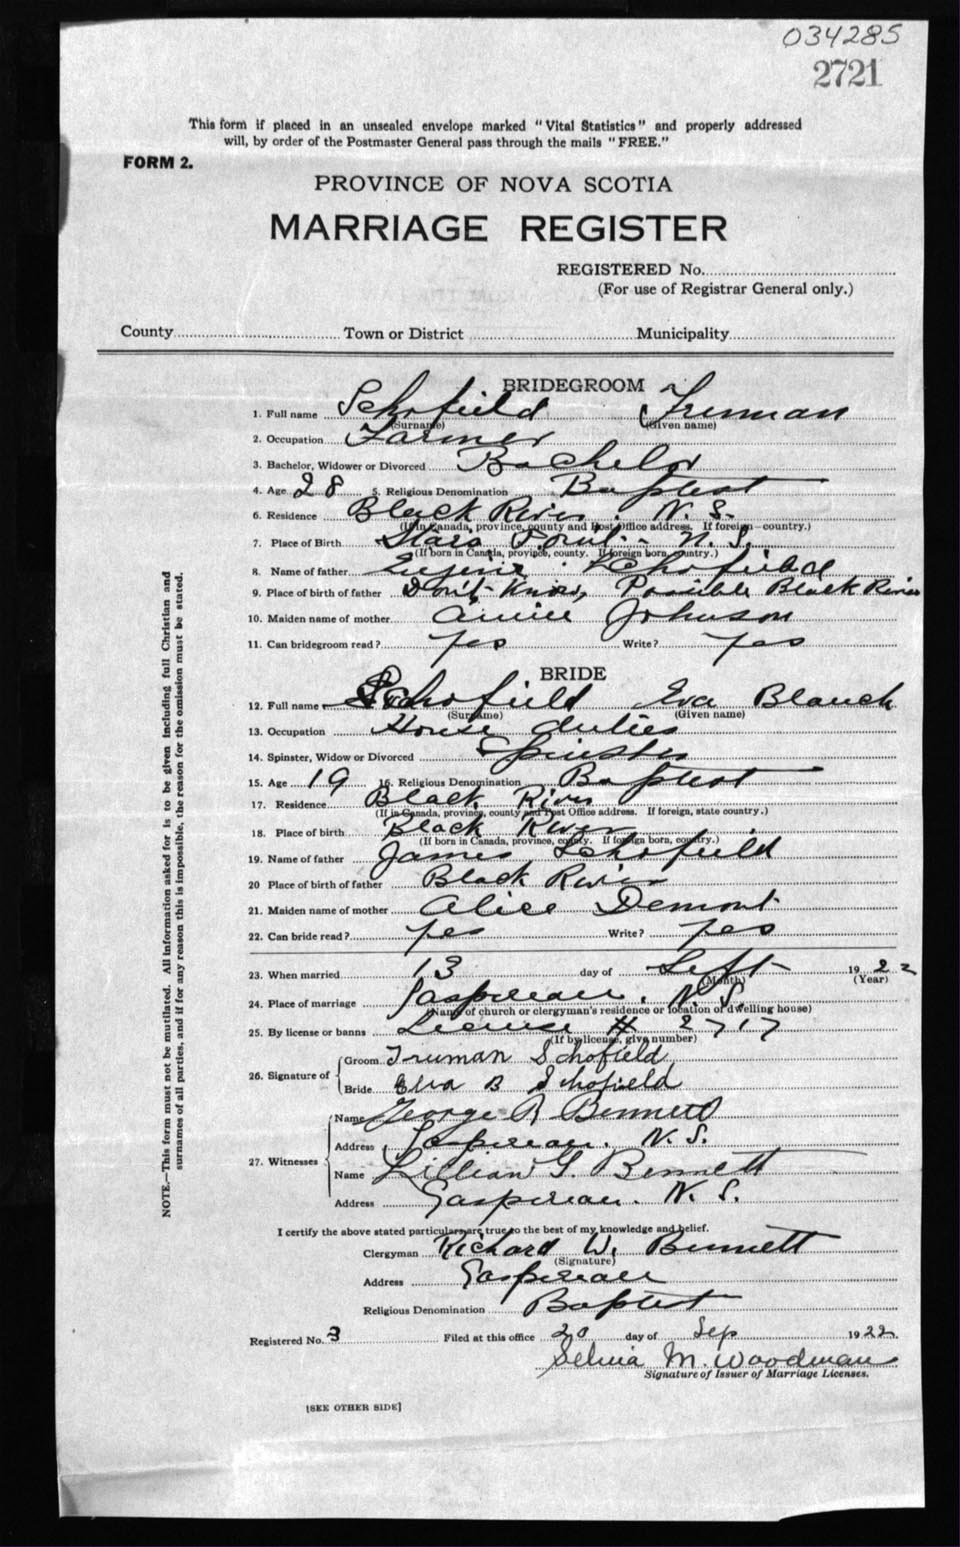 034285
2721
This form if placed in an unsealed envelope marked "Vital Statistics" and properly addressed
will, by order of the Postmaster General pass through the mails "FREE."
FORM 2.
PROVINCE OF NOVA SCOTIA
MARRIAGE REGISTER
REGISTERED No.
(For use of Registrar General only.)
County Town or District Municipality
BRIDEGROOM
1. Full name Schofield Truman
(Surname) (Given name)
2. Occupation Farmer
3. Bachelor, Widower or Divorced Bachelor
4. Age 28 5. Religious Denomination Baptist
6. Residence Black River, N. S.
(If in Canada, province, county and Post Office address. If foreign—country.)
7. Place of Birth Point - N. S.
(If born in Canada, province, county. If foreign born, country.)
8. Name of father Schofield
9. Place of birth of father Don't Know, Possible Black River
10. Maiden name of mother Annie Johnson
11. Can bridegroom read? yes Write? yes
BRIDE
12. Full name Schofield Eva Blanch
(Surname) (Given name)
13. Occupation House duties
14. Spinster, Widow or Divorced Spinster
15. Age 19 16. Religious Denomination Baptist
17. Residence Black River
(If in Canada, province, county and Post Office address. If foreign, state country.)
18. Place of birth Black River
(If born in Canada, province, county. If foreign born, country.)
19. Name of father James Schofield
20 Place of birth of father Black River
21. Maiden name of mother Alice Demont
22. Can bride read? yes Write? yes
23. When married 13 day of Sept 1922
(Month) (Year)
24. Place of marriage Gaspereau, N. S.
(Name of church or clergyman's residence or location of dwelling house)
25. By license or banns License # 2717
(If by license, give number)
26. Signature of Groom Truman Schofield
Bride Eva B Schofield
27. Witnesses Name George R Bennett
Address Gaspereau, N. S.
Name Lillian G. Bennett
Address Gaspereau. N. S.
I certify the above stated particulars are true to the best of my knowledge and belief.
Clergyman Richard W. Bennett
(Signature)
Address Gaspereau
Religious Denomination Baptist
Registered No. 3 Filed at this office 20 day of Sep 1922.
Selina M. Woodman
Signature of Issuer of Marriage Licenses.
[SEE OTHER SIDE]
NOTE.—This form must not be mutilated. All information asked for is to be given including full Christian and
surnames of all parties, and if for any reason this is impossible, the reason for the omission must be stated.